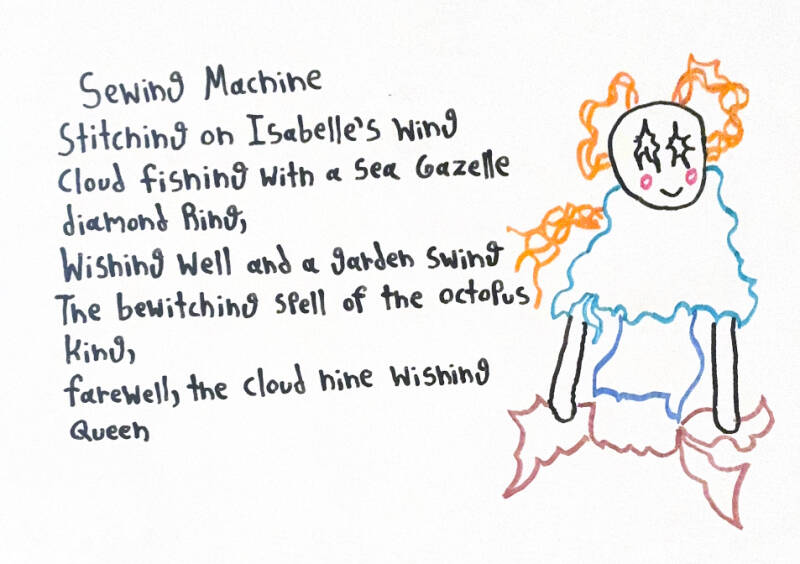 Sewing Machine
Stitching on Isabelle's wing
Cloud fishing with a sea Gazelle
diamond Ring,
Wishing well and a garden swing
The bewitching spell of the octopus
King,
farewell, the cloud nine wishing
Queen